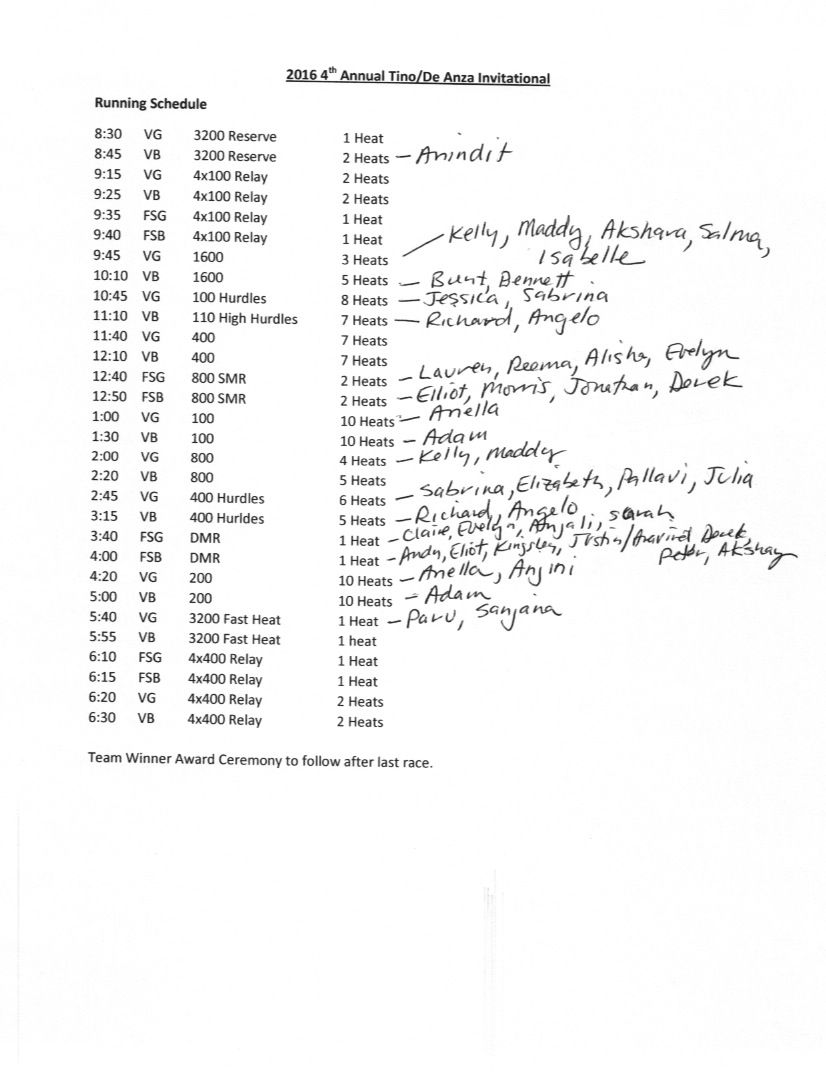 2016 4th Annual Tino/De Anza Invitational
Running Schedule
8:30 VG 3200 Reserve 1 Heat
8:45 VB 3200 Reserve 2 Heats — Anindit
9:15 VG 4x100 Relay 2 Heats
9:25 VB 4x100 Relay 2 Heats
9:35 FSG 4x100 Relay 1 Heat
9:40 FSB 4x100 Relay 1 Heat
9:45 VG 1600 3 Heats — Kelly, Maddy, Akshara, Salma,
Isabelle
10:10 VB 1600 5 Heats — Bunt, Bennett
10:45 VG 100 Hurdles 8 Heats — Jessica, Sabrina
11:10 VB 110 High Hurdles 7 Heats — Richard, Angelo
11:40 VG 400 7 Heats
12:10 VB 400 7 Heats
12:40 FSG 800 SMR 2 Heats — Lauren, Reema, Alisha, Evelyn
12:50 FSB 800 SMR 2 Heats — Elliot, Morris, Jonathan, Derek
1:00 VG 100 10 Heats — Anella
1:30 VB 100 10 Heats — Adam
2:00 VG 800 4 Heats — Kelly, Maddy
2:20 VB 800 5 Heats
2:45 VG 400 Hurdles 6 Heats — Sabrina, Elizabeth, Pallavi, Julia
3:15 VB 400 Hurldes 5 Heats — Richard, Angelo
3:40 FSG DMR 1 Heat — Claire, Evelyn, Anjali, Sarah
4:00 FSB DMR 1 Heat — Andy, Eliot, Kingsley, Justin/Aravind Derek,
Peter, Akshay
4:20 VG 200 10 Heats — Anella, Anjini
5:00 VB 200 10 Heats — Adam
5:40 VG 3200 Fast Heat 1 Heat — Paru, Sanjana
5:55 VB 3200 Fast Heat 1 heat
6:10 FSG 4x400 Relay 1 Heat
6:15 FSB 4x400 Relay 1 Heat
6:20 VG 4x400 Relay 2 Heats
6:30 VB 4x400 Relay 2 Heats
Team Winner Award Ceremony to follow after last race.